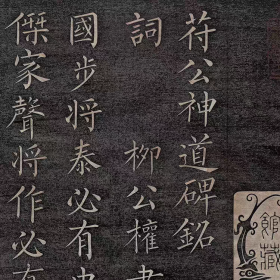 苻公神道碑銘
詞　柳公權書
國步将泰必有忠
傑家聲将作必有
館藏